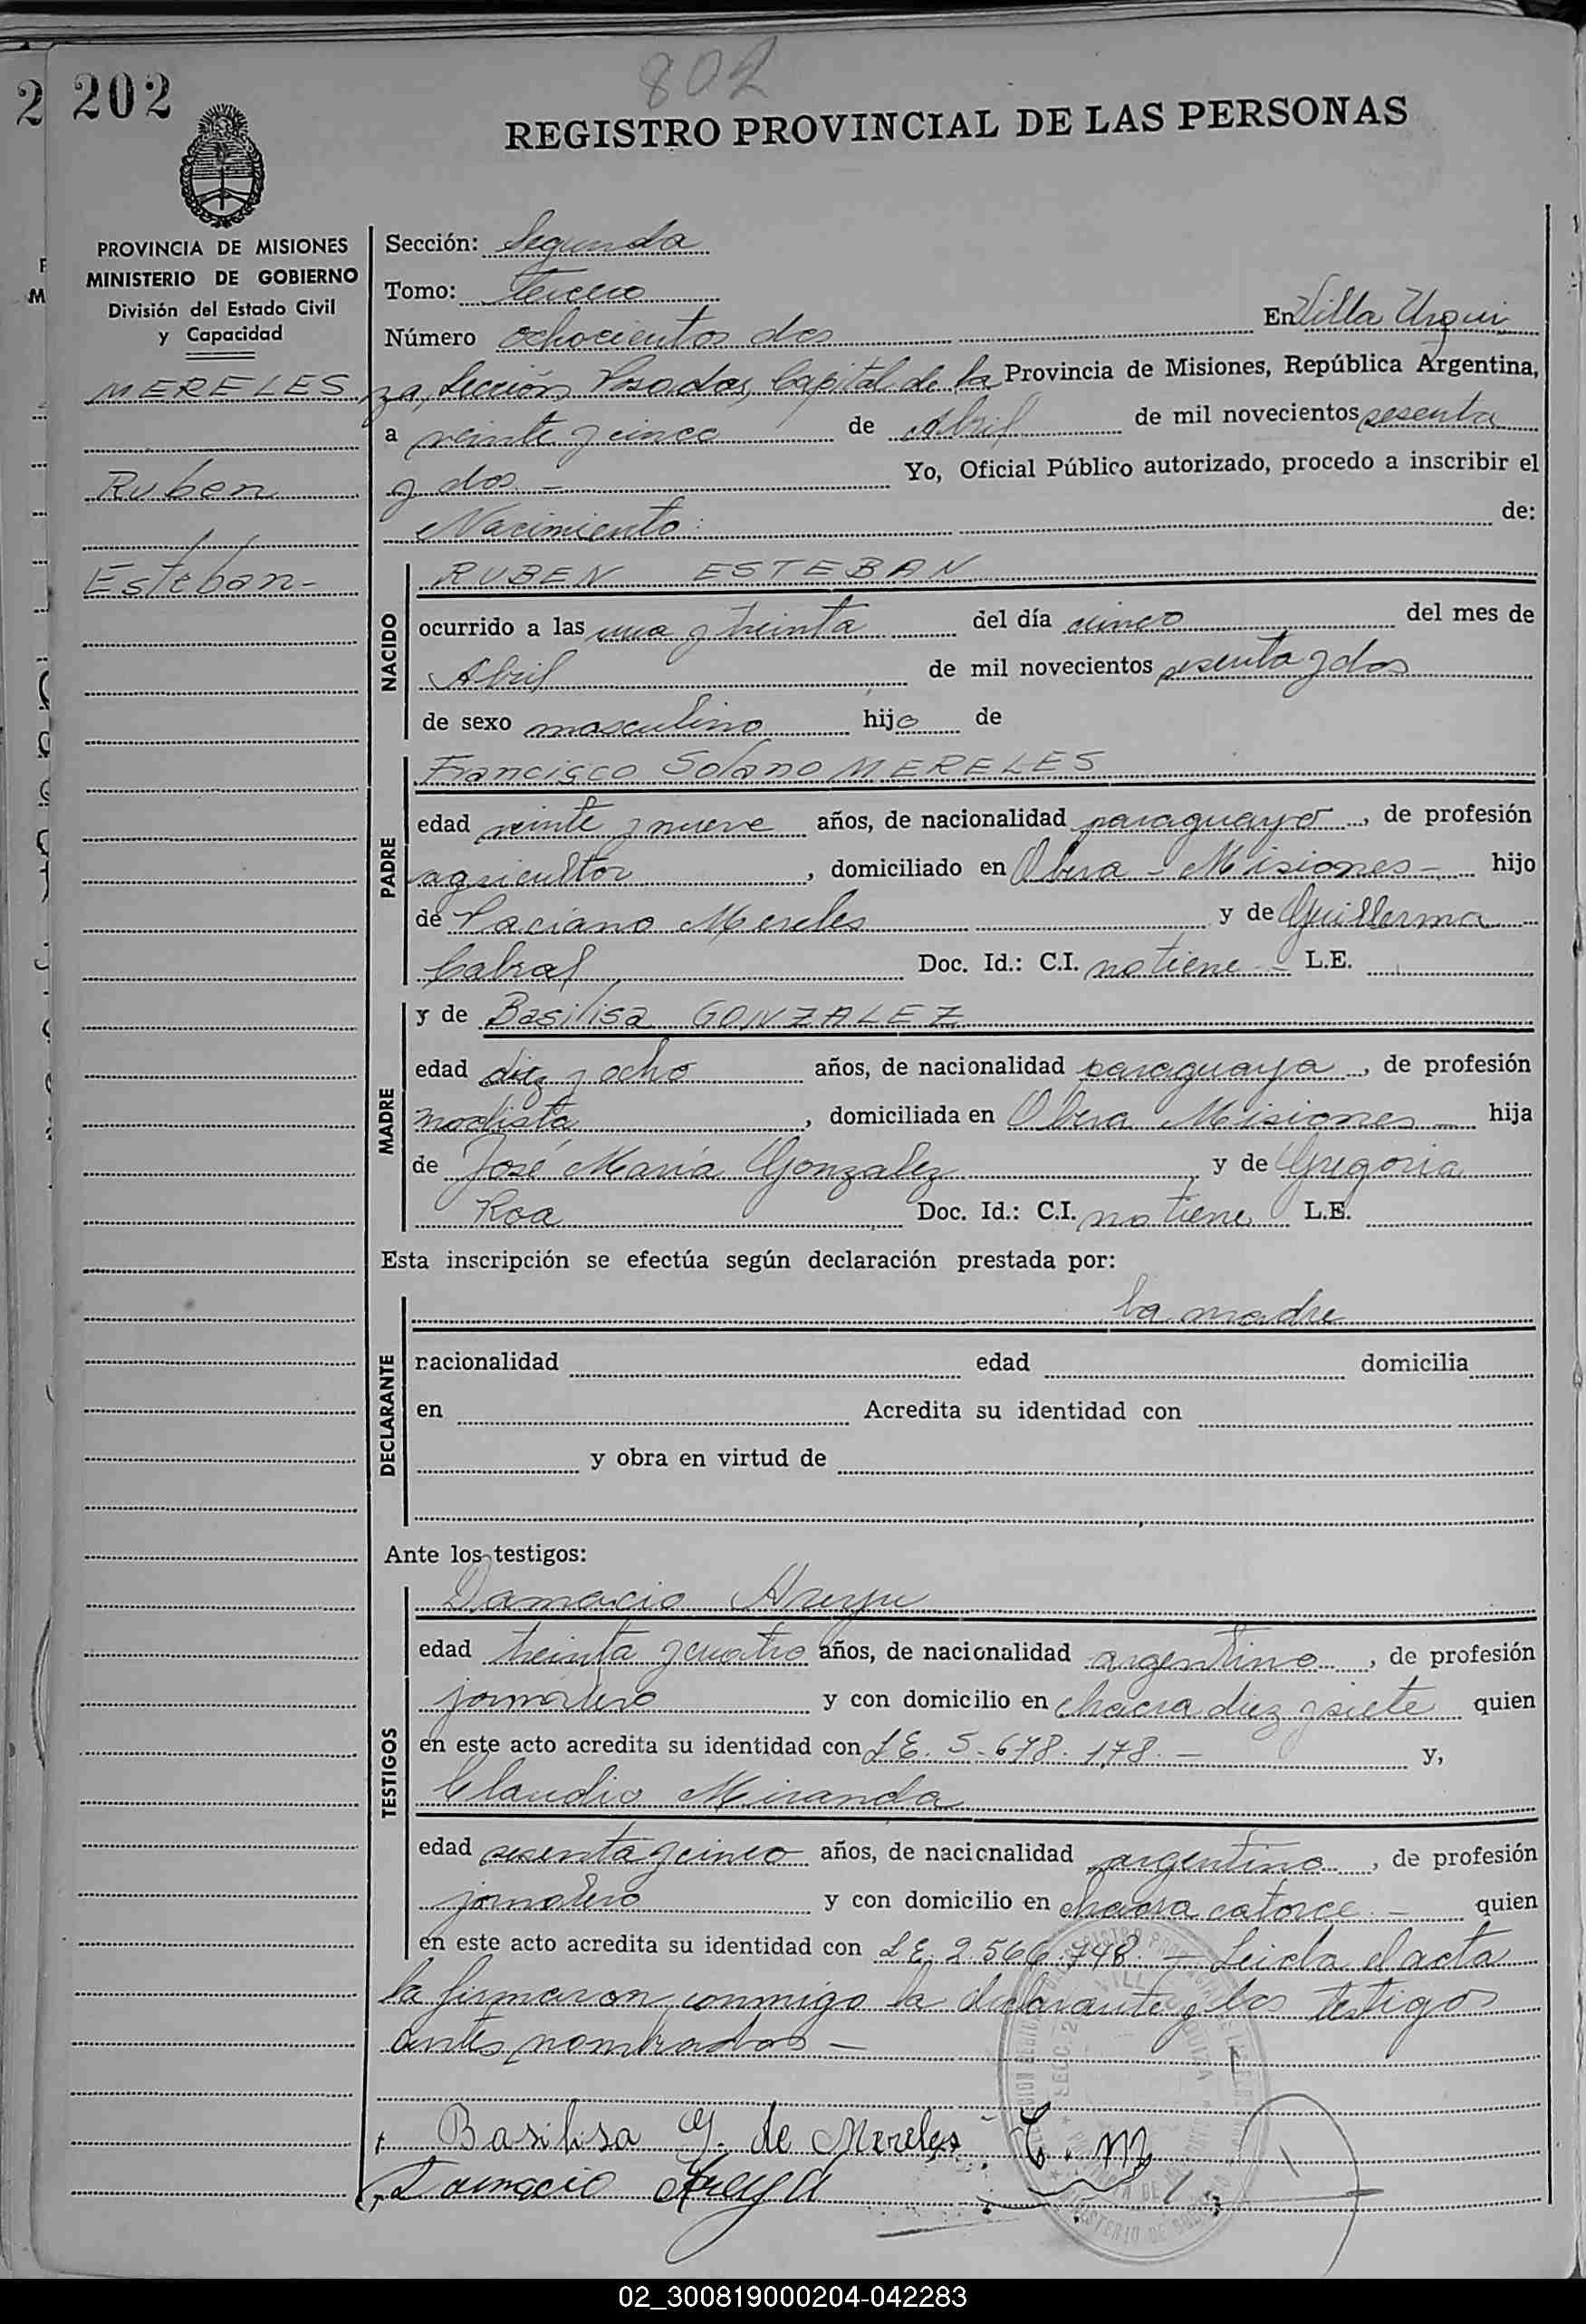 802
2 202
REGISTRO PROVINCIAL DE LAS PERSONAS
PROVINCIA DE MISIONES
MINISTERIO DE GOBIERNO
División del Estado Civil
y Capacidad
MERELES
Ruben
Esteban-
Sección: Segunda
Tomo: tercero
Número ochocientos dos En Villa Urqui
za, Sección Posadas, Capital de la Provincia de Misiones, República Argentina,
a veinte y cinco de Abril de mil novecientos sesenta
y dos - Yo, Oficial Público autorizado, procedo a inscribir el
Nacimiento: de:
NACIDO
RUBEN ESTEBAN
ocurrido a las una y treinta del día cinco del mes de
Abril de mil novecientos sesenta y dos
de sexo masculino hijo de
PADRE
Francisco Solano MERELES
edad veinte y nueve años, de nacionalidad paraguayo, de profesión
agricultor, domiciliado en Obera - Misiones - hijo
de Paciano Mereles y de Guillerma
Cabral Doc. Id.: C.I. no tiene - L.E.
MADRE
y de Basilisa GONZALEZ
edad diez y ocho años, de nacionalidad paraguaya, de profesión
modista, domiciliada en Obera Misiones hija
de José María Gonzalez y de Gregoria
Roa Doc. Id.: C.I. no tiene L.E.
Esta inscripción se efectúa según declaración prestada por:
DECLARANTE
la madre
nacionalidad edad domicilia
en Acredita su identidad con
y obra en virtud de
Ante los testigos:
TESTIGOS
Damacio
edad treinta y cuatro años, de nacionalidad argentino, de profesión
jornalero y con domicilio en chacra diez y siete quien
en este acto acredita su identidad con L E. 5-678.178.- y,
Claudio Miranda
edad sesenta y cinco años, de nacionalidad argentino, de profesión
jornalero y con domicilio en chacra catorce - quien
en este acto acredita su identidad con L E. 2.566.748. - Leida el acta
la firmaron conmigo la declarante y los testigos
antes nombrados -
Basilisa G. de Mereles C. M
Damacio
02_300819000204-042283